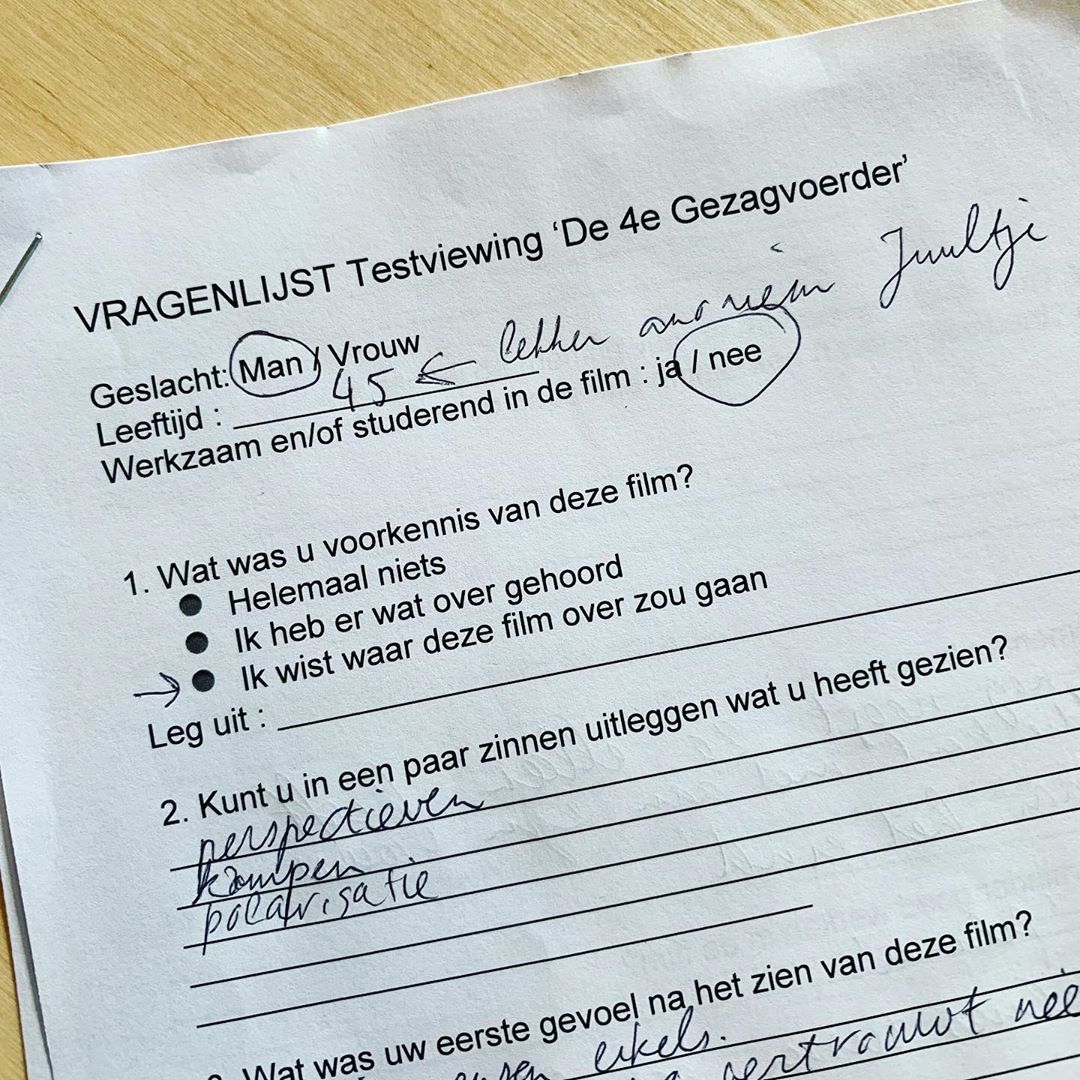 VRAGENLIJST Testviewing ‘De 4e Gezagvoerder’
Geslacht: Man / Vrouw
Leeftijd : 45 ← lekker anoniem Juultje
Werkzaam en/of studerend in de film : ja / nee
1. Wat was u voorkennis van deze film?
● Helemaal niets
● Ik heb er wat over gehoord
→ ● Ik wist waar deze film over zou gaan
Leg uit :
2. Kunt u in een paar zinnen uitleggen wat u heeft gezien?
perspectieven
kampen
polarisatie
Wat was uw eerste gevoel na het zien van deze film?
eikels.
vertrouwt